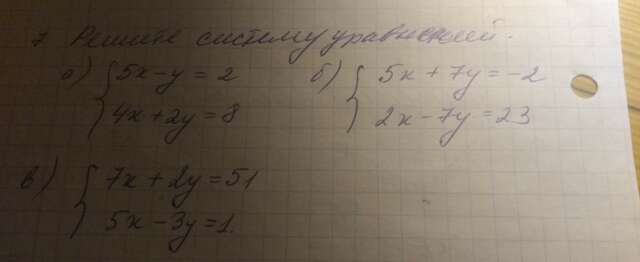 7 Решите систему уравнений.
а) { 5x - y = 2 б) { 5x + 7y = -2
4x + 2y = 8 2x - 7y = 23
в) { 7x + 2y = 51
5x - 3y = 1.